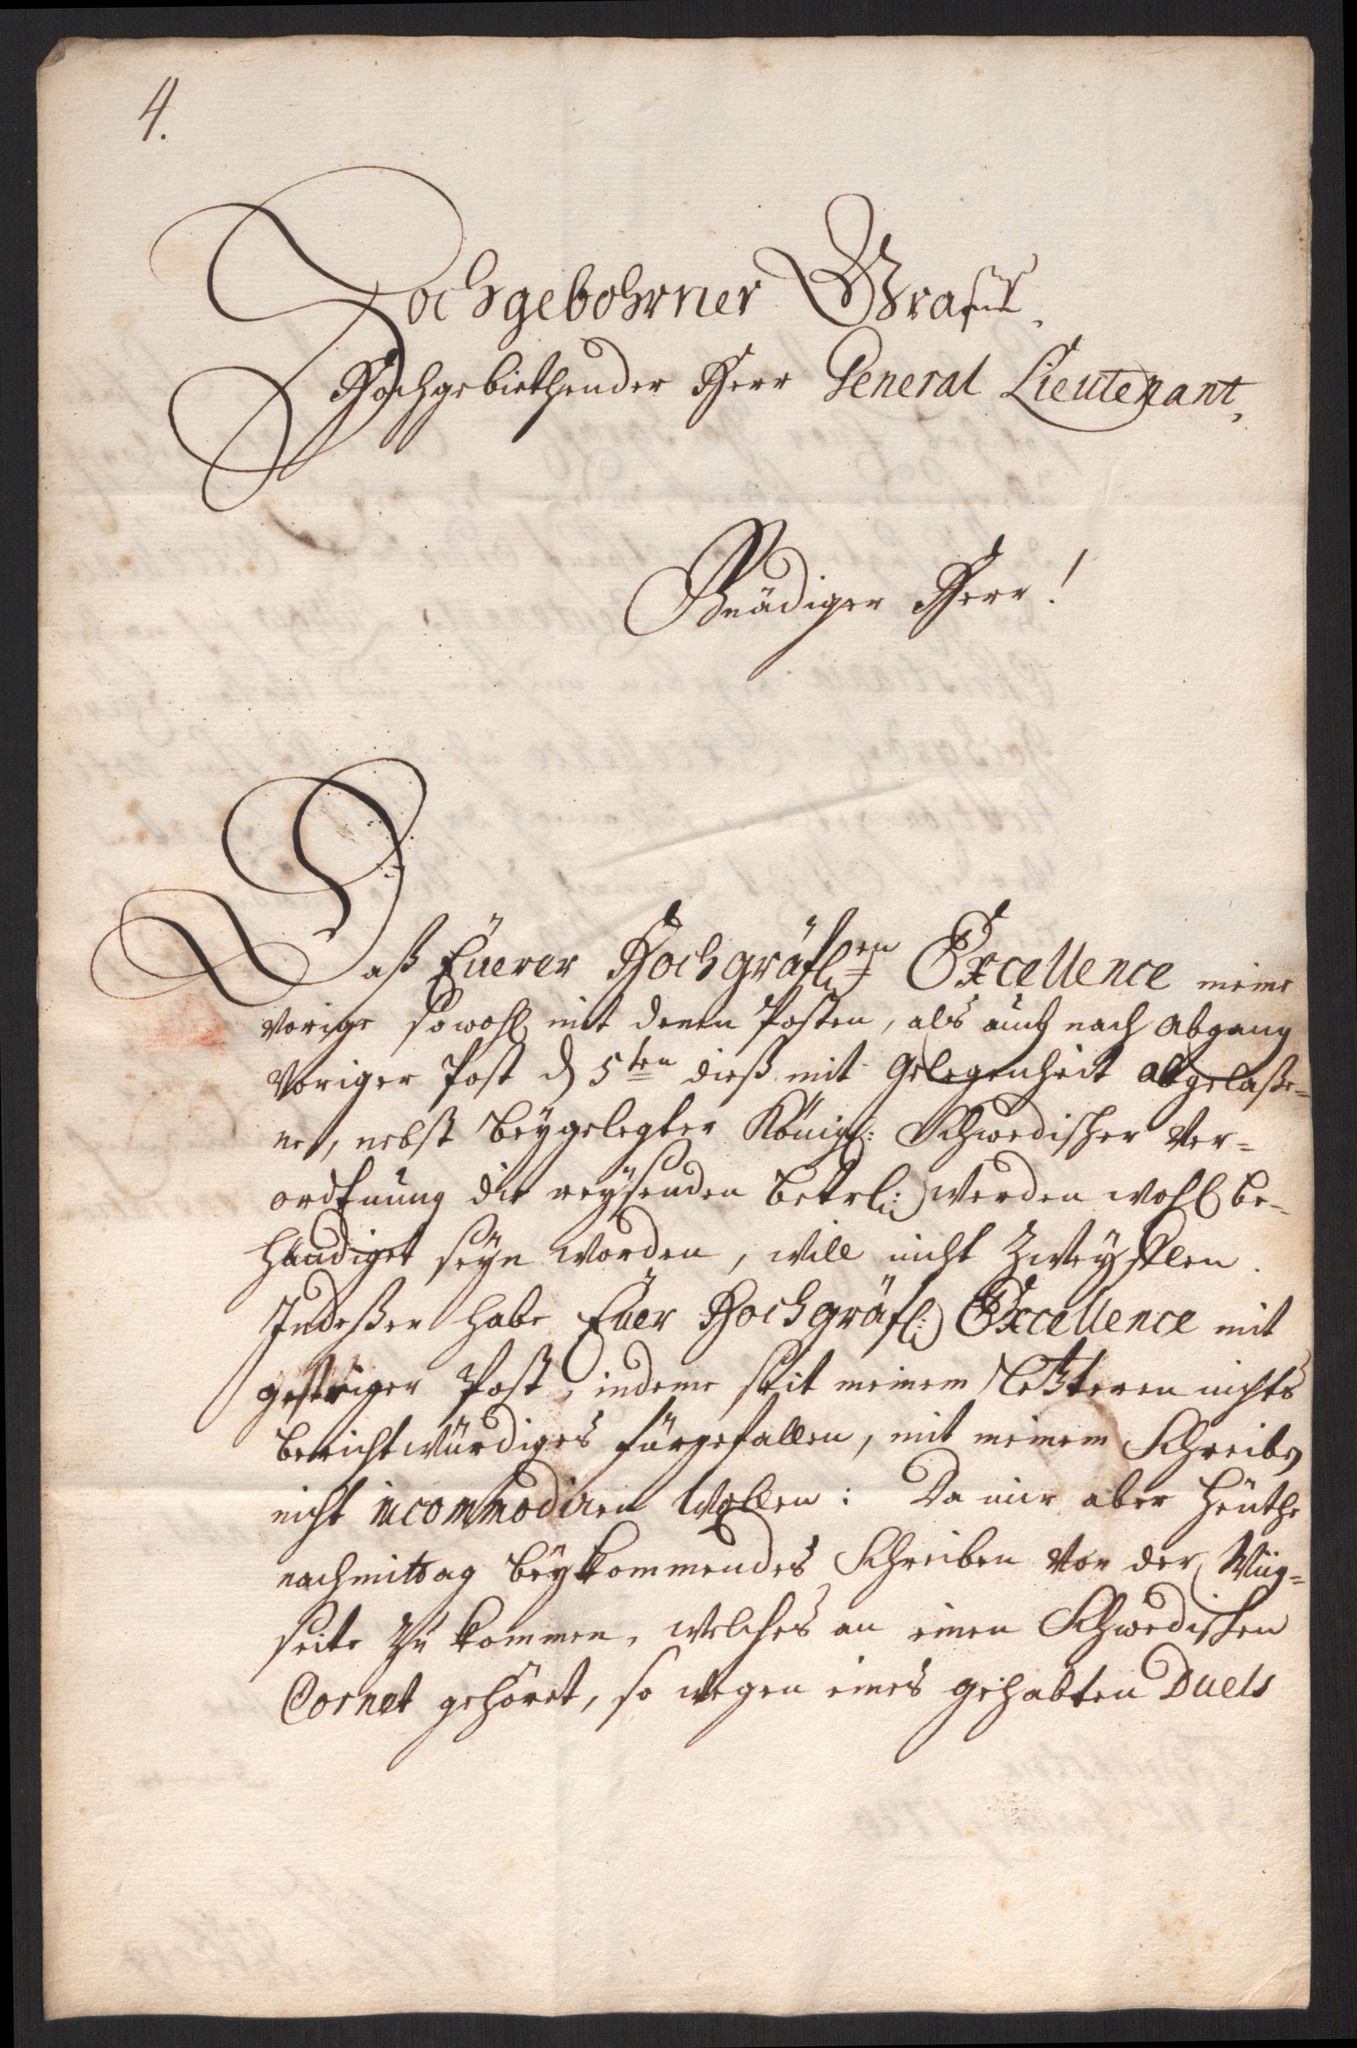 4.
Hochgebohrner Graff,
Hochgebiethender Herr General Lieutenant,
Gnädiger Herr!
Daß Eüerer Hochgräfl:en Excellence meine
vorige sowohl mit denen Posten, als auch nach abgang
voriger Post d 5ten dieß mit gelegenheit abgelaße-
ne, nebst beygelegter Königl: Schwedischer Ver-
ordtnung die reysenden betrl: werden wohl be-
händiget seyn worden, will nicht zweyflen.
Indeßen habe Euer Hochgräfl: Excellence mit
gestriger Post, indeme seit meinem letzteren nichts
berichtwürdiges fürgefallen, mit meinem Schreiben
nicht incommodiren wollen: Da mir aber heüthe
nachmittag beykommendes Schreiben von der
seite zu kommen, welches an einen Schwedischen
Cornet gehöret, so wegen eines gehabten Duels